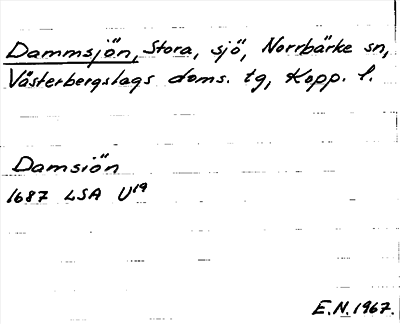 Dammsjön, Stora, sjö, Norrbärke sn,
Västerbergslags doms. tg, Kopp. l.
Damsiön
1687 LSA U19
E.N. 1967.